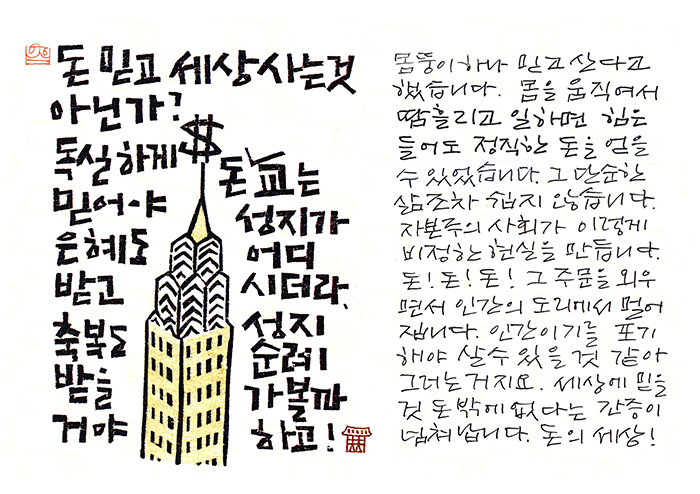 돈 믿고 세상 사는 것
아닌가?
독실하게
믿어야
은혜도
받고
축복도
받을
거야
$
돈교는
성지가
어디
시더라,
성지
순례
가볼까
하고!
몸뚱이 하나 믿고 산다고
했습니다. 몸을 움직여서
땀흘리고 일하면 힘은
들어도 정직한 돈을 얻을
수 있었습니다. 그 단순한
삶조차 쉽지 않습니다.
자본주의 사회가 이렇게
비정한 현실을 만듭니다.
돈! 돈! 돈! 그 주문을 외우
면서 인간의 도리에서 멀어
집니다. 인간이기를 포기
해야 살 수 있을 것 같아
그러는 거지요. 세상에 믿을
것 돈 밖에 없다는 간증이
넘쳐납니다. 돈의 세상!